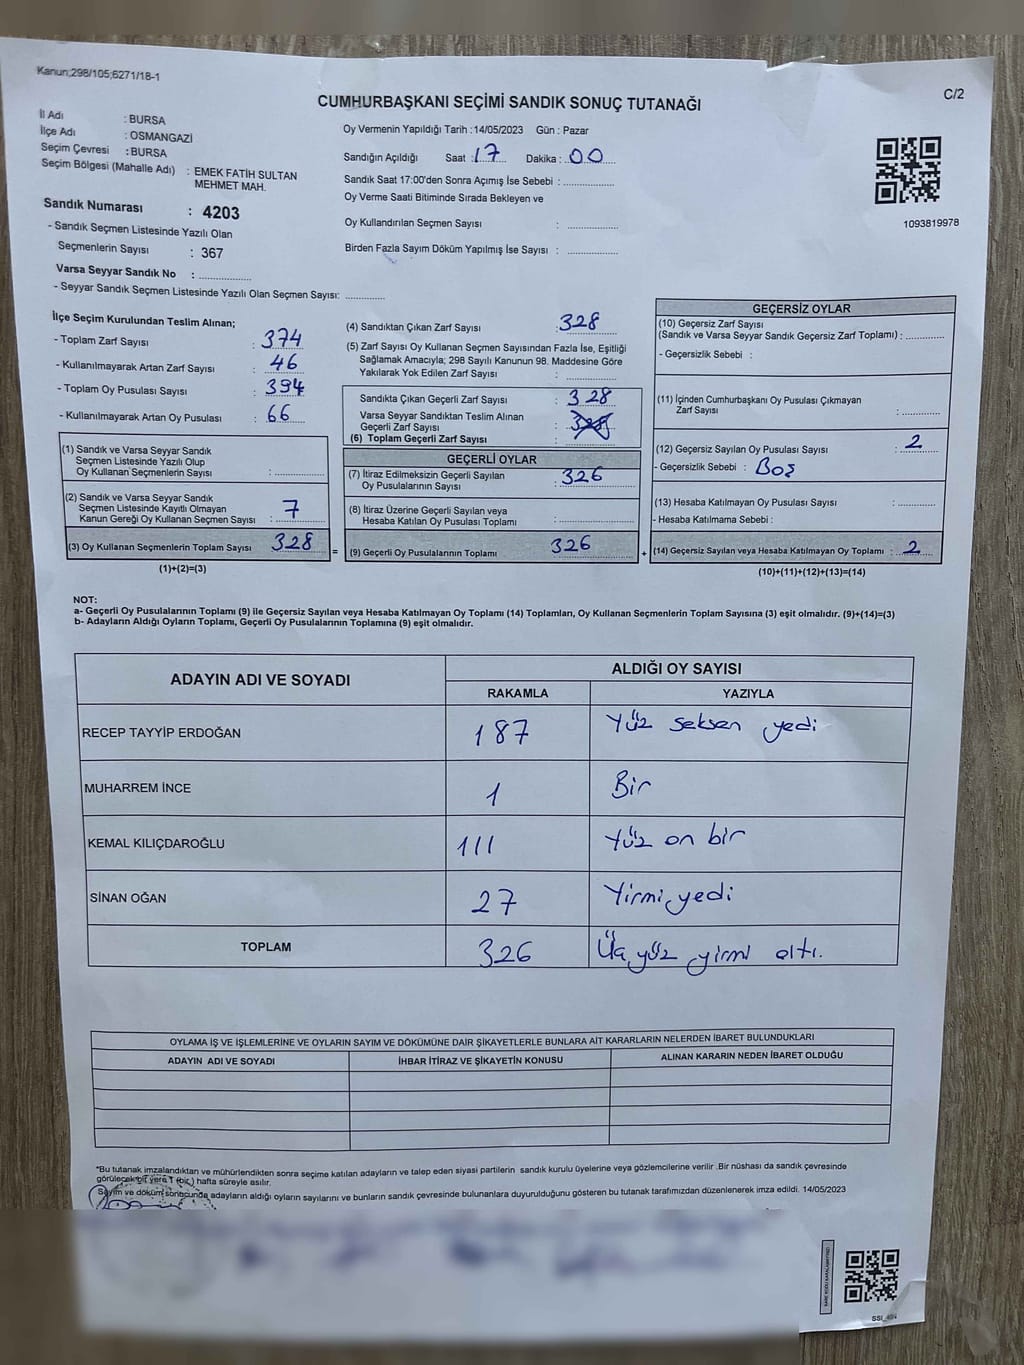 Kanun;298/105;6271/18-1
C/2
CUMHURBAŞKANI SEÇİMİ SANDIK SONUÇ TUTANAĞI
İl Adı : BURSA
İlçe Adı : OSMANGAZİ
Seçim Çevresi : BURSA
Seçim Bölgesi (Mahalle Adı) : EMEK FATİH SULTAN
MEHMET MAH.
Sandık Numarası : 4203
- Sandık Seçmen Listesinde Yazılı Olan
Seçmenlerin Sayısı : 367
Varsa Seyyar Sandık No : ...............
- Seyyar Sandık Seçmen Listesinde Yazılı Olan Seçmen Sayısı: ............
Oy Vermenin Yapıldığı Tarih : 14/05/2023 Gün : Pazar
Sandığın Açıldığı Saat : 17 Dakika : 00
Sandık Saat 17:00'den Sonra Açımış İse Sebebi : ...............
Oy Verme Saati Bitiminde Sırada Bekleyen ve
Oy Kullandırılan Seçmen Sayısı : ...............
Birden Fazla Sayım Döküm Yapılmış İse Sayısı : ...............
1093819978
İlçe Seçim Kurulundan Teslim Alınan;
- Toplam Zarf Sayısı : 374
- Kullanılmayarak Artan Zarf Sayısı : 46
- Toplam Oy Pusulası Sayısı : 394
- Kullanılmayarak Artan Oy Pusulası : 66
(1) Sandık ve Varsa Seyyar Sandık
Seçmen Listesinde Yazılı Olup
Oy Kullanan Seçmenlerin Sayısı : ...............
(2) Sandık ve Varsa Seyyar Sandık
Seçmen Listesinde Kayıtlı Olmayan
Kanun Gereği Oy Kullanan Seçmen Sayısı : 7
(3) Oy Kullanan Seçmenlerin Toplam Sayısı 328
(1)+(2)=(3)
(4) Sandıktan Çıkan Zarf Sayısı : 328
(5) Zarf Sayısı Oy Kullanan Seçmen Sayısından Fazla İse, Eşitliği
Sağlamak Amacıyla; 298 Sayılı Kanunun 98. Maddesine Göre
Yakılarak Yok Edilen Zarf Sayısı : ...............
Sandıkta Çıkan Geçerli Zarf Sayısı : 328
Varsa Seyyar Sandıktan Teslim Alınan
Geçerli Zarf Sayısı : 328
(6) Toplam Geçerli Zarf Sayısı :
GEÇERLİ OYLAR
(7) İtiraz Edilmeksizin Geçerli Sayılan
Oy Pusulalarının Sayısı : 326
(8) İtiraz Üzerine Geçerli Sayılan veya
Hesaba Katılan Oy Pusulası Toplamı : ...............
= (9) Geçerli Oy Pusulalarının Toplamı 326
GEÇERSİZ OYLAR
(10) Geçersiz Zarf Sayısı
(Sandık ve Varsa Seyyar Sandık Geçersiz Zarf Toplamı) : ............
- Geçersizlik Sebebi :
(11) İçinden Cumhurbaşkanı Oy Pusulası Çıkmayan
Zarf Sayısı : ............
(12) Geçersiz Sayılan Oy Pusulası Sayısı : 2
- Geçersizlik Sebebi : Boş
(13) Hesaba Katılmayan Oy Pusulası Sayısı : ............
- Hesaba Katılmama Sebebi :
+ (14) Geçersiz Sayılan veya Hesaba Katılmayan Oy Toplamı : 2
(10)+(11)+(12)+(13)=(14)
NOT:
a- Geçerli Oy Pusulalarının Toplamı (9) ile Geçersiz Sayılan veya Hesaba Katılmayan Oy Toplamı (14) Toplamları, Oy Kullanan Seçmenlerin Toplam Sayısına (3) eşit olmalıdır. (9)+(14)=(3)
b- Adayların Aldığı Oyların Toplamı, Geçerli Oy Pusulalarının Toplamına (9) eşit olmalıdır.
ADAYIN ADI VE SOYADI ALDIĞI OY SAYISI
RAKAMLA YAZIYLA
RECEP TAYYİP ERDOĞAN 187 Yüz seksen yedi
MUHARREM İNCE 1 Bir
KEMAL KILIÇDAROĞLU 111 Yüz on bir
SİNAN OĞAN 27 Yirmi yedi
TOPLAM 326 Üç yüz yirmi altı.
OYLAMA İŞ VE İŞLEMLERİNE VE OYLARIN SAYIM VE DÖKÜMÜNE DAİR ŞİKAYETLERLE BUNLARA AİT KARARLARIN NELERDEN İBARET BULUNDUKLARI
ADAYIN ADI VE SOYADI İHBAR İTİRAZ VE ŞİKAYETİN KONUSU ALINAN KARARIN NEDEN İBARET OLDUĞU
*Bu tutanak imzalandıktan ve mühürlendikten sonra seçime katılan adayların ve talep eden siyasi partilerin sandık kurulu üyelerine veya gözlemcilerine verilir .Bir nüshası da sandık çevresinde
görülecek bir yere 1 (bir) hafta süreyle asılır.
Sayım ve döküm sonucunda adayların aldığı oyların sayılarını ve bunların sandık çevresinde bulunanlara duyurulduğunu gösteren bu tutanak tarafımızdan düzenlenerek imza edildi. 14/05/2023